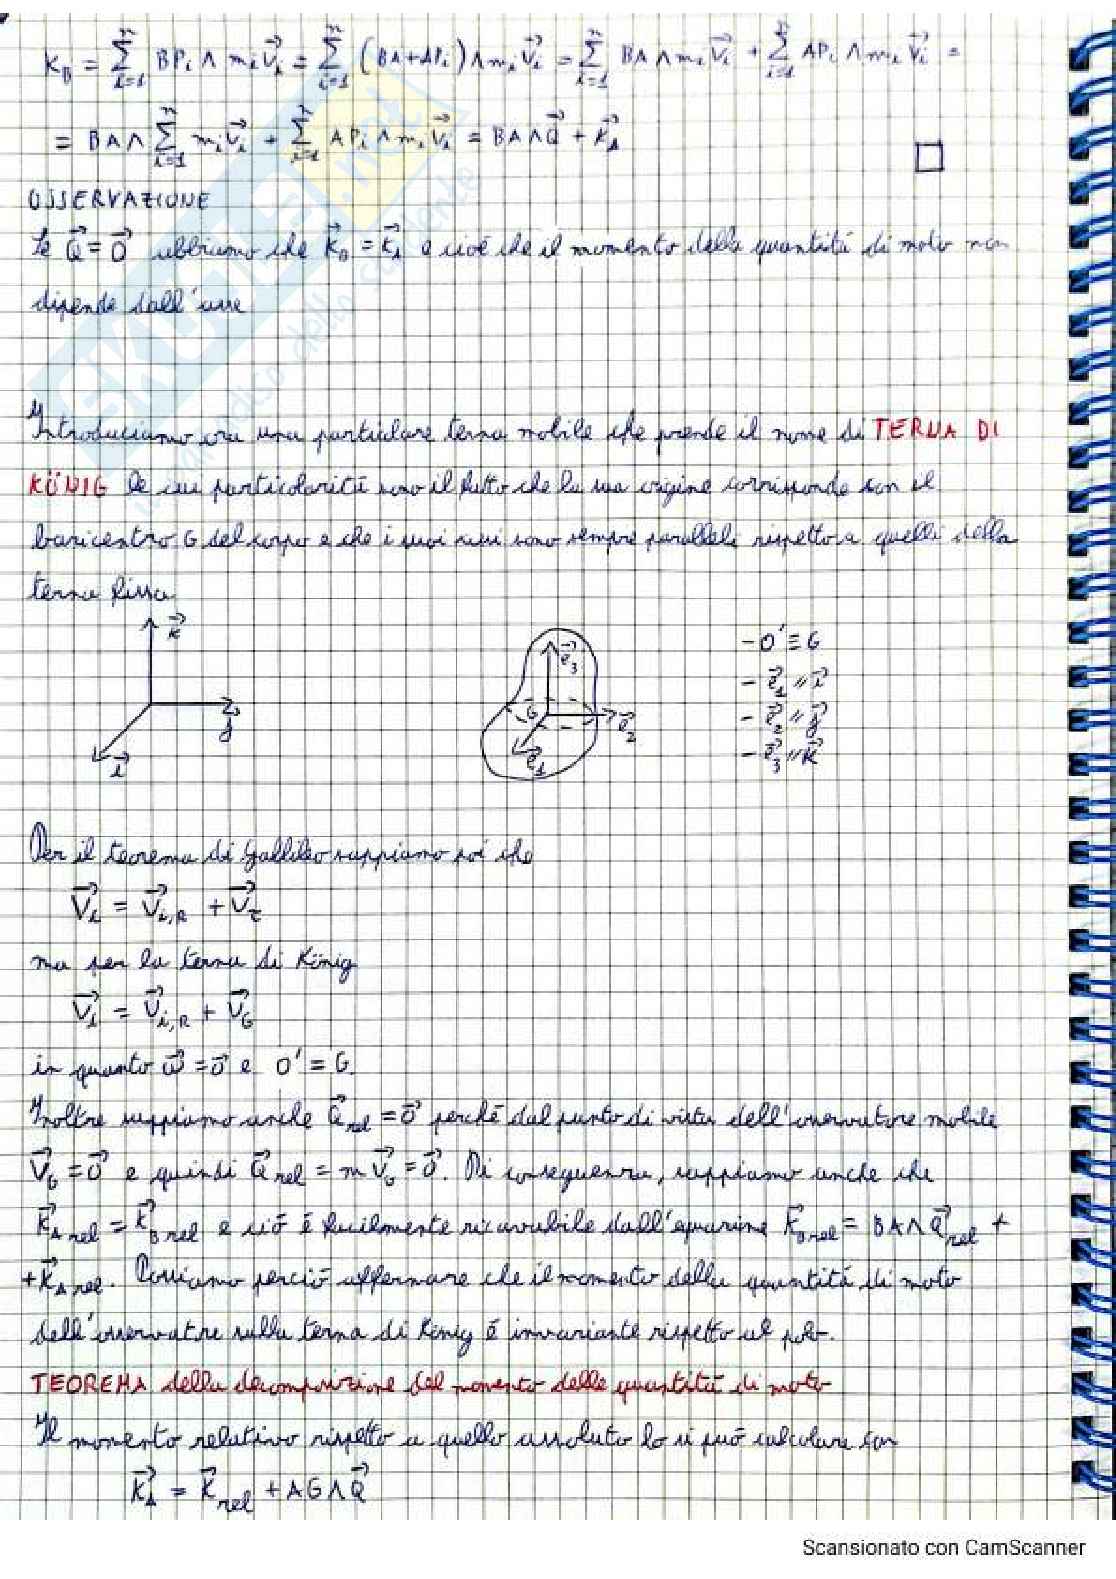 K_B = Σ_{i=1}^{n} BP_i ∧ m_i v⃗_i = Σ_{i=1}^{n} (BA + AP_i) ∧ m_i v⃗_i = Σ_{i=1}^{n} BA ∧ m_i v⃗_i + Σ_{i=1}^{n} AP_i ∧ m_i v⃗_i =
= BA ∧ Σ_{i=1}^{n} m_i v⃗_i + Σ_{i=1}^{n} AP_i ∧ m_i v⃗_i = BA ∧ Q⃗ + K⃗_A □
OSSERVAZIONE
Se Q⃗ = 0⃗ abbiamo che K⃗_B = K⃗_A e cioè che il momento della quantità di moto non
dipende dall'asse
Introduciamo ora una particolare terna mobile che prende il nome di TERNA DI
KÖNIG le cui particolarità sono il fatto che la sua origine corrisponde con il
baricentro G del corpo e che i suoi assi sono sempre paralleli rispetto a quelli della
terna fissa
k⃗
j⃗
i⃗
e⃗_3
G
e⃗_2
e⃗_1
- O' ≡ G
- e⃗_1 // i⃗
- e⃗_2 // j⃗
- e⃗_3 // k⃗
Per il teorema di Gallileo sappiamo poi che
V⃗_i = V⃗_{i,R} + V⃗_τ
ma per la terna di König
V⃗_i = V⃗_{i,R} + V⃗_G
in quanto ω⃗ = 0⃗ e O' ≡ G.
Inoltre sappiamo anche Q⃗_rel = 0⃗ perché dal punto di vista dell'osservatore mobile
V⃗_G = 0⃗ e quindi Q⃗_rel = m V⃗_G = 0⃗. Di conseguenza, sappiamo anche che
K⃗_A rel = K⃗_B rel e ciò è facilmente ricavabile dall'equazione K⃗_B rel = BA ∧ Q⃗_rel +
+ K⃗_A rel. Possiamo perciò affermare che il momento della quantità di moto
dell'osservatore sulla terna di König è invariante rispetto al polo.
TEOREMA della decomposizione del momento delle quantità di moto
Il momento relativo rispetto a quello assoluto lo si può calcolare con
K⃗_A = K⃗_rel + AG ∧ Q⃗
Scansionato con CamScanner